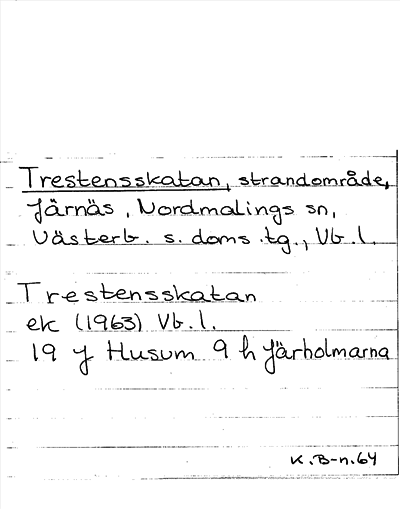 Trestensskatan, strandområde,
Järnäs, Nordmalings sn,
Västerb. s. doms.tg., Vb.l.
Trestensskatan
ek (1963) Vb.l.
19 J Husum 9 h Järholmarna
K.B-n.64